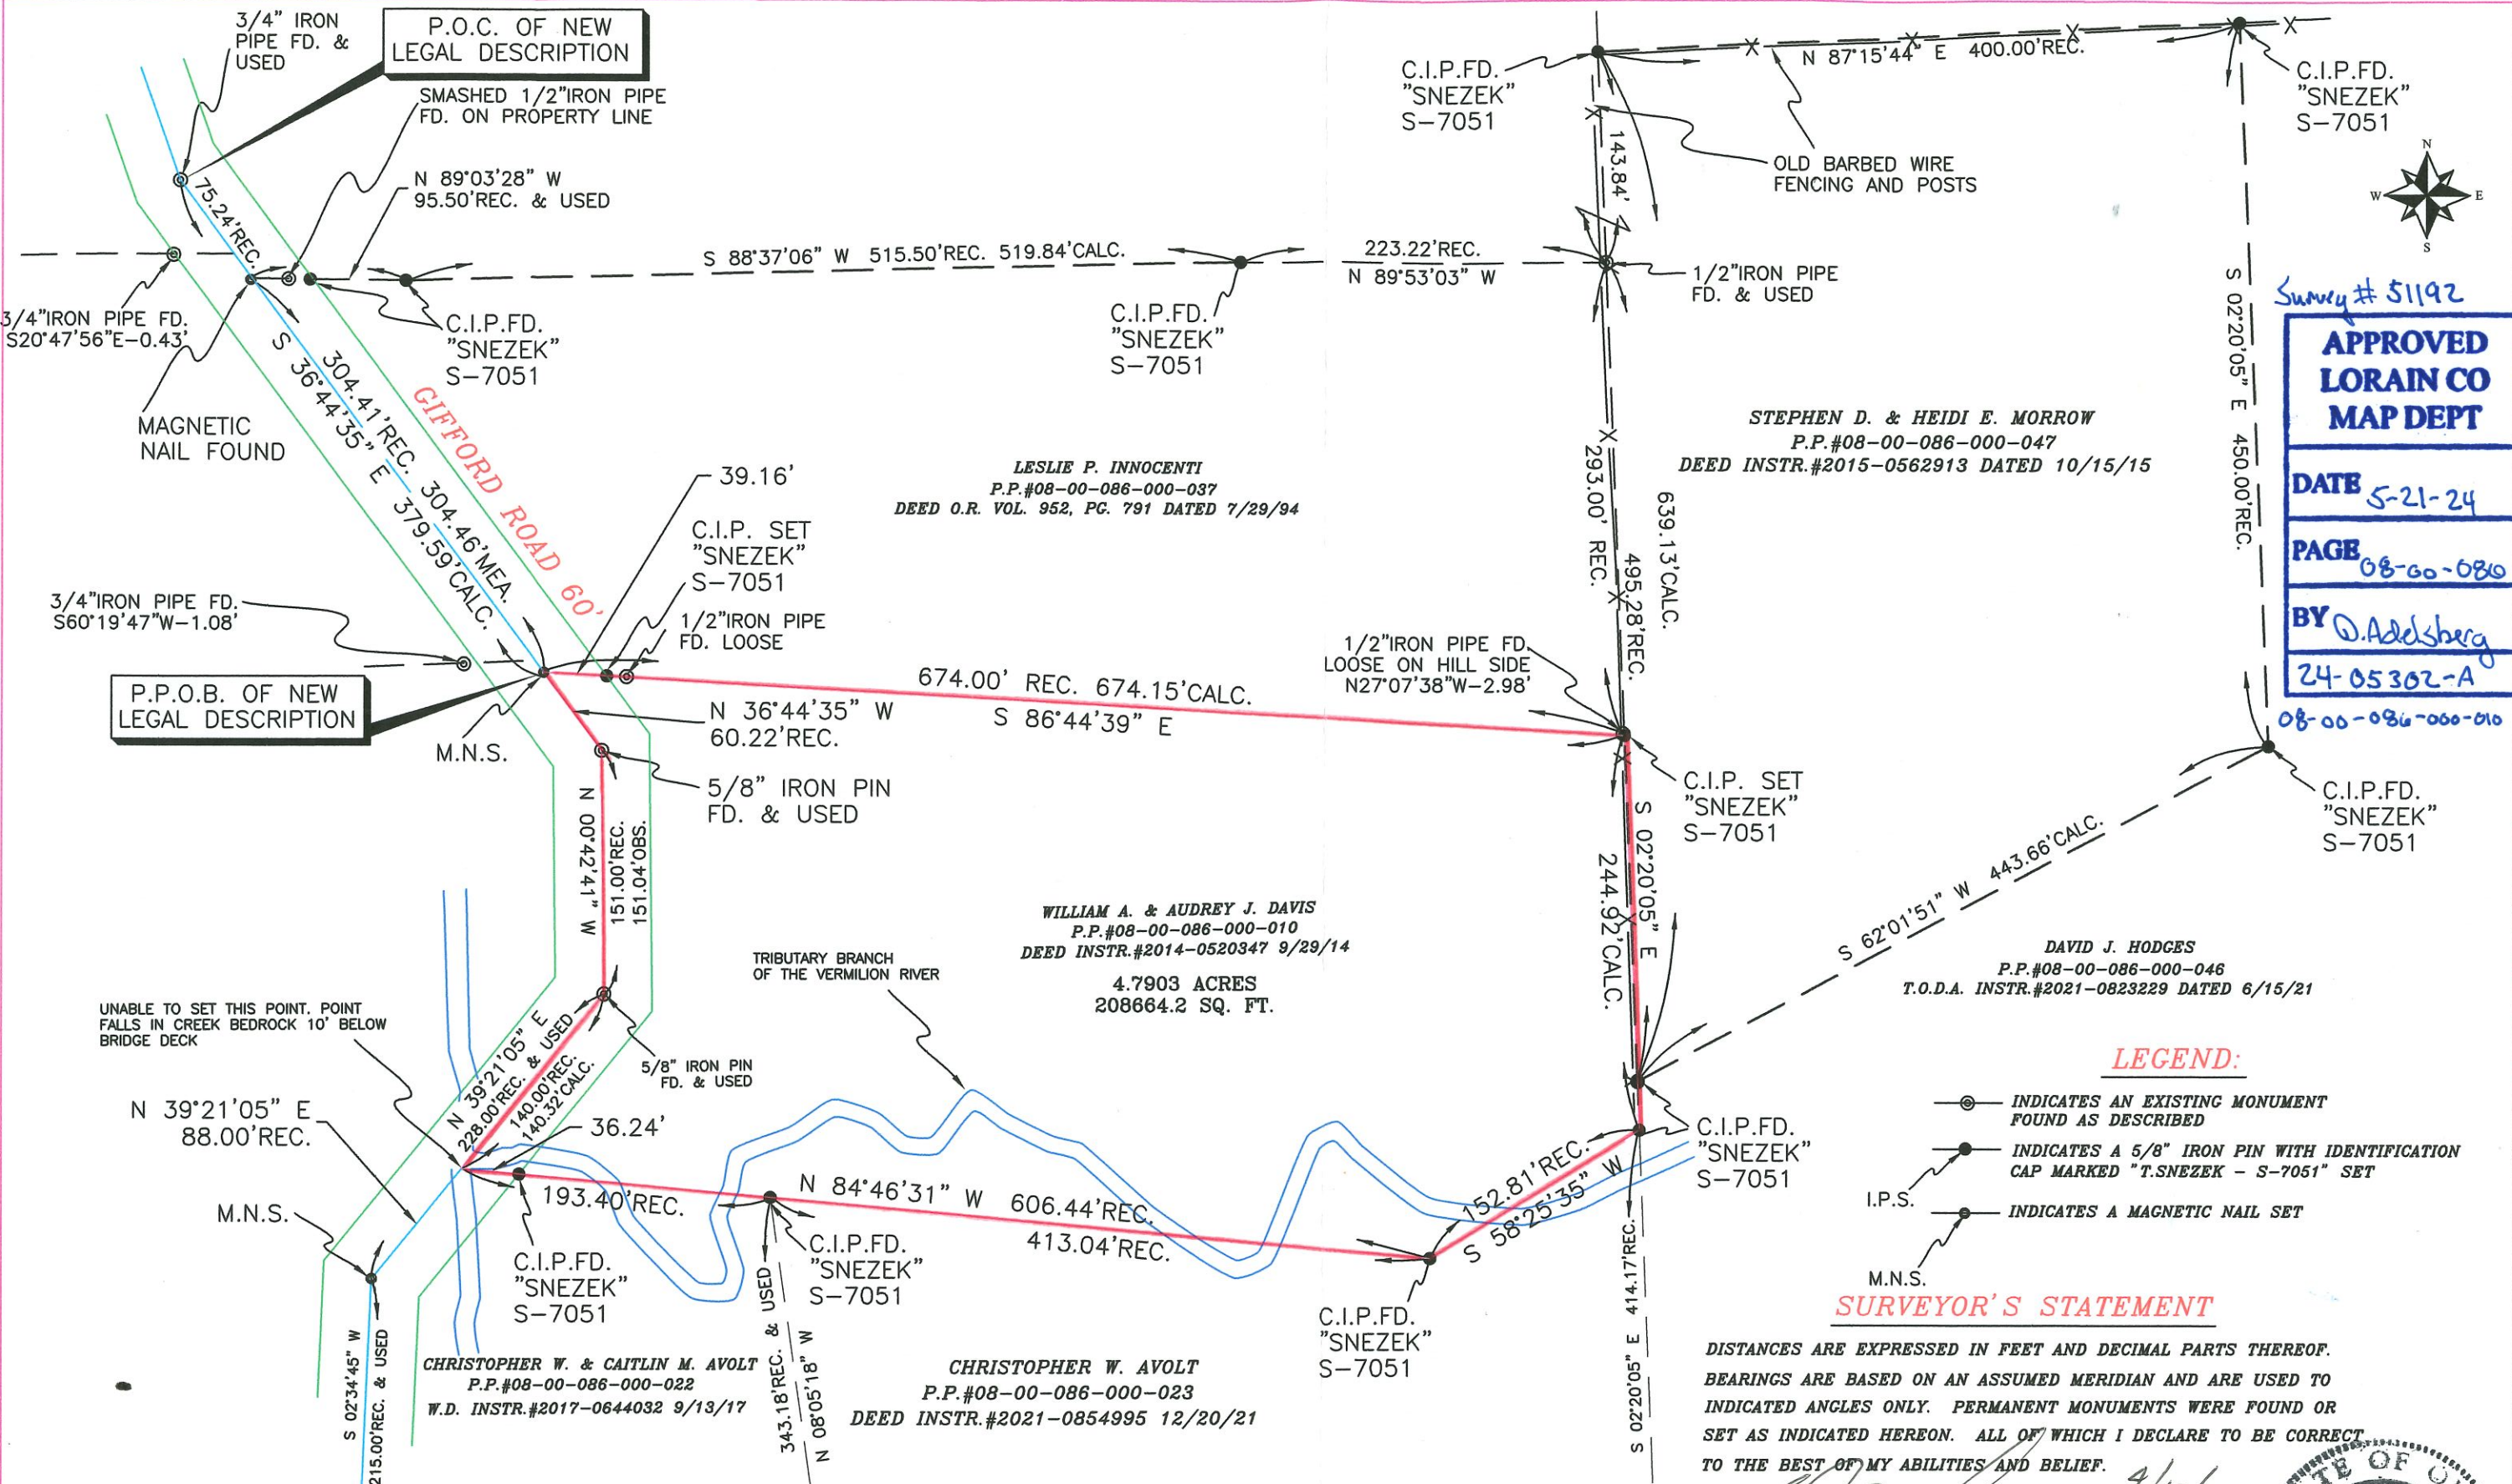 3/4" IRON
PIPE FD. &
USED
P.O.C. OF NEW
LEGAL DESCRIPTION
SMASHED 1/2"IRON PIPE
FD. ON PROPERTY LINE
N 89°03'28" W
95.50'REC. & USED
75.24'REC.
3/4"IRON PIPE FD.
S20°47'56"E-0.43'
MAGNETIC
NAIL FOUND
C.I.P.FD.
"SNEZEK"
S-7051
S 88°37'06" W 515.50'REC. 519.84'CALC.
C.I.P.FD.
"SNEZEK"
S-7051
223.22'REC.
N 89°53'03" W
1/2"IRON PIPE
FD. & USED
C.I.P.FD.
"SNEZEK"
S-7051
N 87°15'44" E 400.00'REC.
C.I.P.FD.
"SNEZEK"
S-7051
OLD BARBED WIRE
FENCING AND POSTS
143.84'
N
W
E
S
S 02°20'05" E 450.00'REC.
Survey # 51192
APPROVED
LORAIN CO
MAP DEPT
DATE 5-21-24
PAGE 08-00-086
BY D. Adelsberg
24-05302-A
08-00-086-000-010
304.41'REC. 304.46'MEA.
S 36°44'35" E 379.59'CALC.
GIFFORD ROAD 60'
39.16'
C.I.P. SET
"SNEZEK"
S-7051
1/2"IRON PIPE
FD. LOOSE
LESLIE P. INNOCENTI
P.P.#08-00-086-000-037
DEED O.R. VOL. 952, PG. 791 DATED 7/29/94
STEPHEN D. & HEIDI E. MORROW
P.P.#08-00-086-000-047
DEED INSTR.#2015-0562913 DATED 10/15/15
293.00' REC.
495.28'REC.
639.13'CALC.
3/4"IRON PIPE FD.
S60°19'47"W-1.08'
P.P.O.B. OF NEW
LEGAL DESCRIPTION
M.N.S.
N 36°44'35" W
60.22'REC.
5/8" IRON PIN
FD. & USED
674.00' REC. 674.15'CALC.
S 86°44'39" E
1/2"IRON PIPE FD.
LOOSE ON HILL SIDE
N27°07'38"W-2.98'
C.I.P. SET
"SNEZEK"
S-7051
C.I.P.FD.
"SNEZEK"
S-7051
N 00°42'41" W
151.00'REC.
151.04'OBS.
S 02°20'05" E
244.92'CALC.
S 62°01'51" W 443.66'CALC.
WILLIAM A. & AUDREY J. DAVIS
P.P.#08-00-086-000-010
DEED INSTR.#2014-0520347 9/29/14
4.7903 ACRES
208664.2 SQ. FT.
TRIBUTARY BRANCH
OF THE VERMILION RIVER
DAVID J. HODGES
P.P.#08-00-086-000-046
T.O.D.A. INSTR.#2021-0823229 DATED 6/15/21
UNABLE TO SET THIS POINT. POINT
FALLS IN CREEK BEDROCK 10' BELOW
BRIDGE DECK
N 39°21'05" E
228.00'REC. & USED
140.00'REC.
140.32'CALC.
5/8" IRON PIN
FD. & USED
N 39°21'05" E
88.00'REC.
36.24'
M.N.S.
193.40'REC.
C.I.P.FD.
"SNEZEK"
S-7051
N 84°46'31" W 606.44'REC.
413.04'REC.
C.I.P.FD.
"SNEZEK"
S-7051
152.81'REC.
S 58°25'35" W
C.I.P.FD.
"SNEZEK"
S-7051
C.I.P.FD.
"SNEZEK"
S-7051
S 02°34'45" W
215.00'REC. & USED
CHRISTOPHER W. & CAITLIN M. AVOLT
P.P.#08-00-086-000-022
W.D. INSTR.#2017-0644032 9/13/17
343.18'REC. & USED
N 08°05'18" W
CHRISTOPHER W. AVOLT
P.P.#08-00-086-000-023
DEED INSTR.#2021-0854995 12/20/21
S 02°20'05" E 414.17'REC.
LEGEND:
INDICATES AN EXISTING MONUMENT
FOUND AS DESCRIBED
INDICATES A 5/8" IRON PIN WITH IDENTIFICATION
CAP MARKED "T.SNEZEK - S-7051" SET
I.P.S.
INDICATES A MAGNETIC NAIL SET
M.N.S.
SURVEYOR'S STATEMENT
DISTANCES ARE EXPRESSED IN FEET AND DECIMAL PARTS THEREOF.
BEARINGS ARE BASED ON AN ASSUMED MERIDIAN AND ARE USED TO
INDICATED ANGLES ONLY. PERMANENT MONUMENTS WERE FOUND OR
SET AS INDICATED HEREON. ALL OF WHICH I DECLARE TO BE CORRECT
TO THE BEST OF MY ABILITIES AND BELIEF.